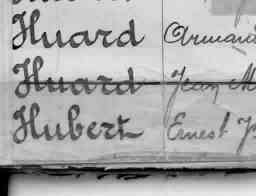 Huard Armand
Huard Jean M
Hubert Ernest J